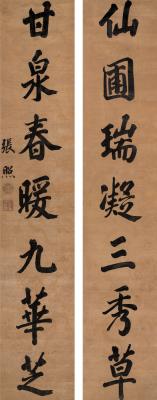 仙圃瑞凝三秀草
甘泉春暖九華芝
張照